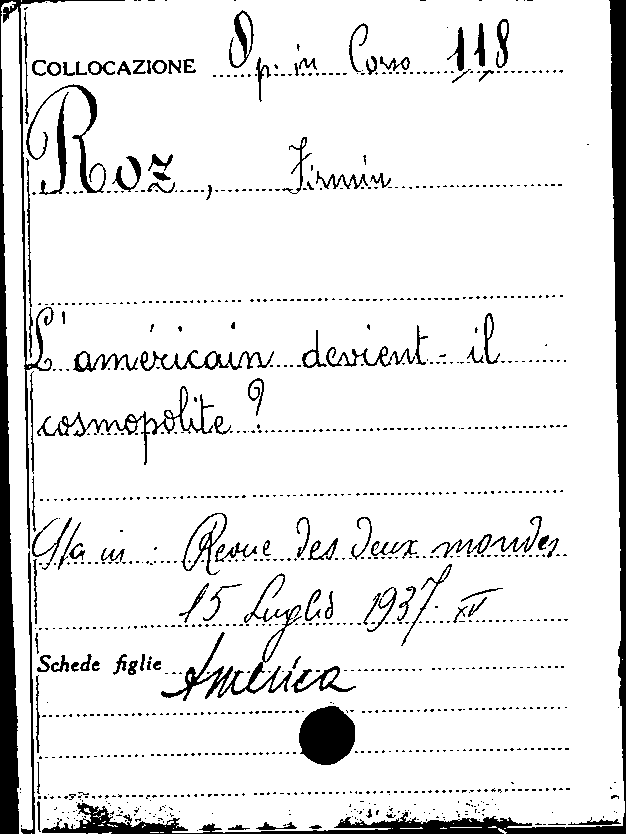 COLLOCAZIONE Op. in Corso 118
Roz, Firmin
L'américain devient-il
cosmopolite?
Sta in: Revue des deux mondes
15 Luglio 1937. XV
Schede figlie America